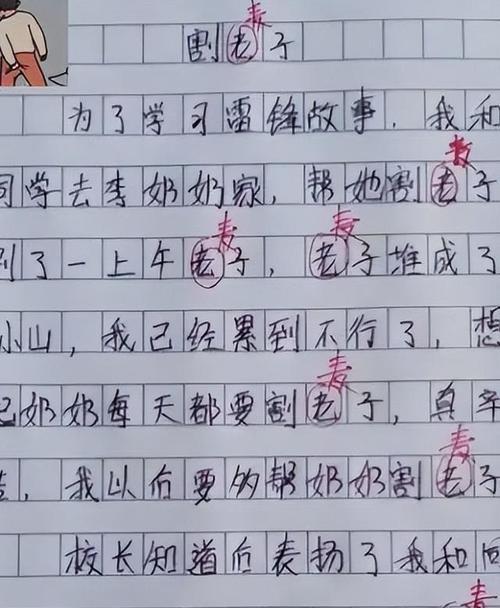 麦
割老子
为了学习雷锋故事，我和
麦
同学去李奶奶家，帮她割老子
麦 麦
了一上午老子，老子堆成了
小山，我已经累到不行了，想
麦
奶奶每天都要割老子，真辛
麦
，我以后要多帮奶奶割老子
校长知道后表扬了我和同
麦